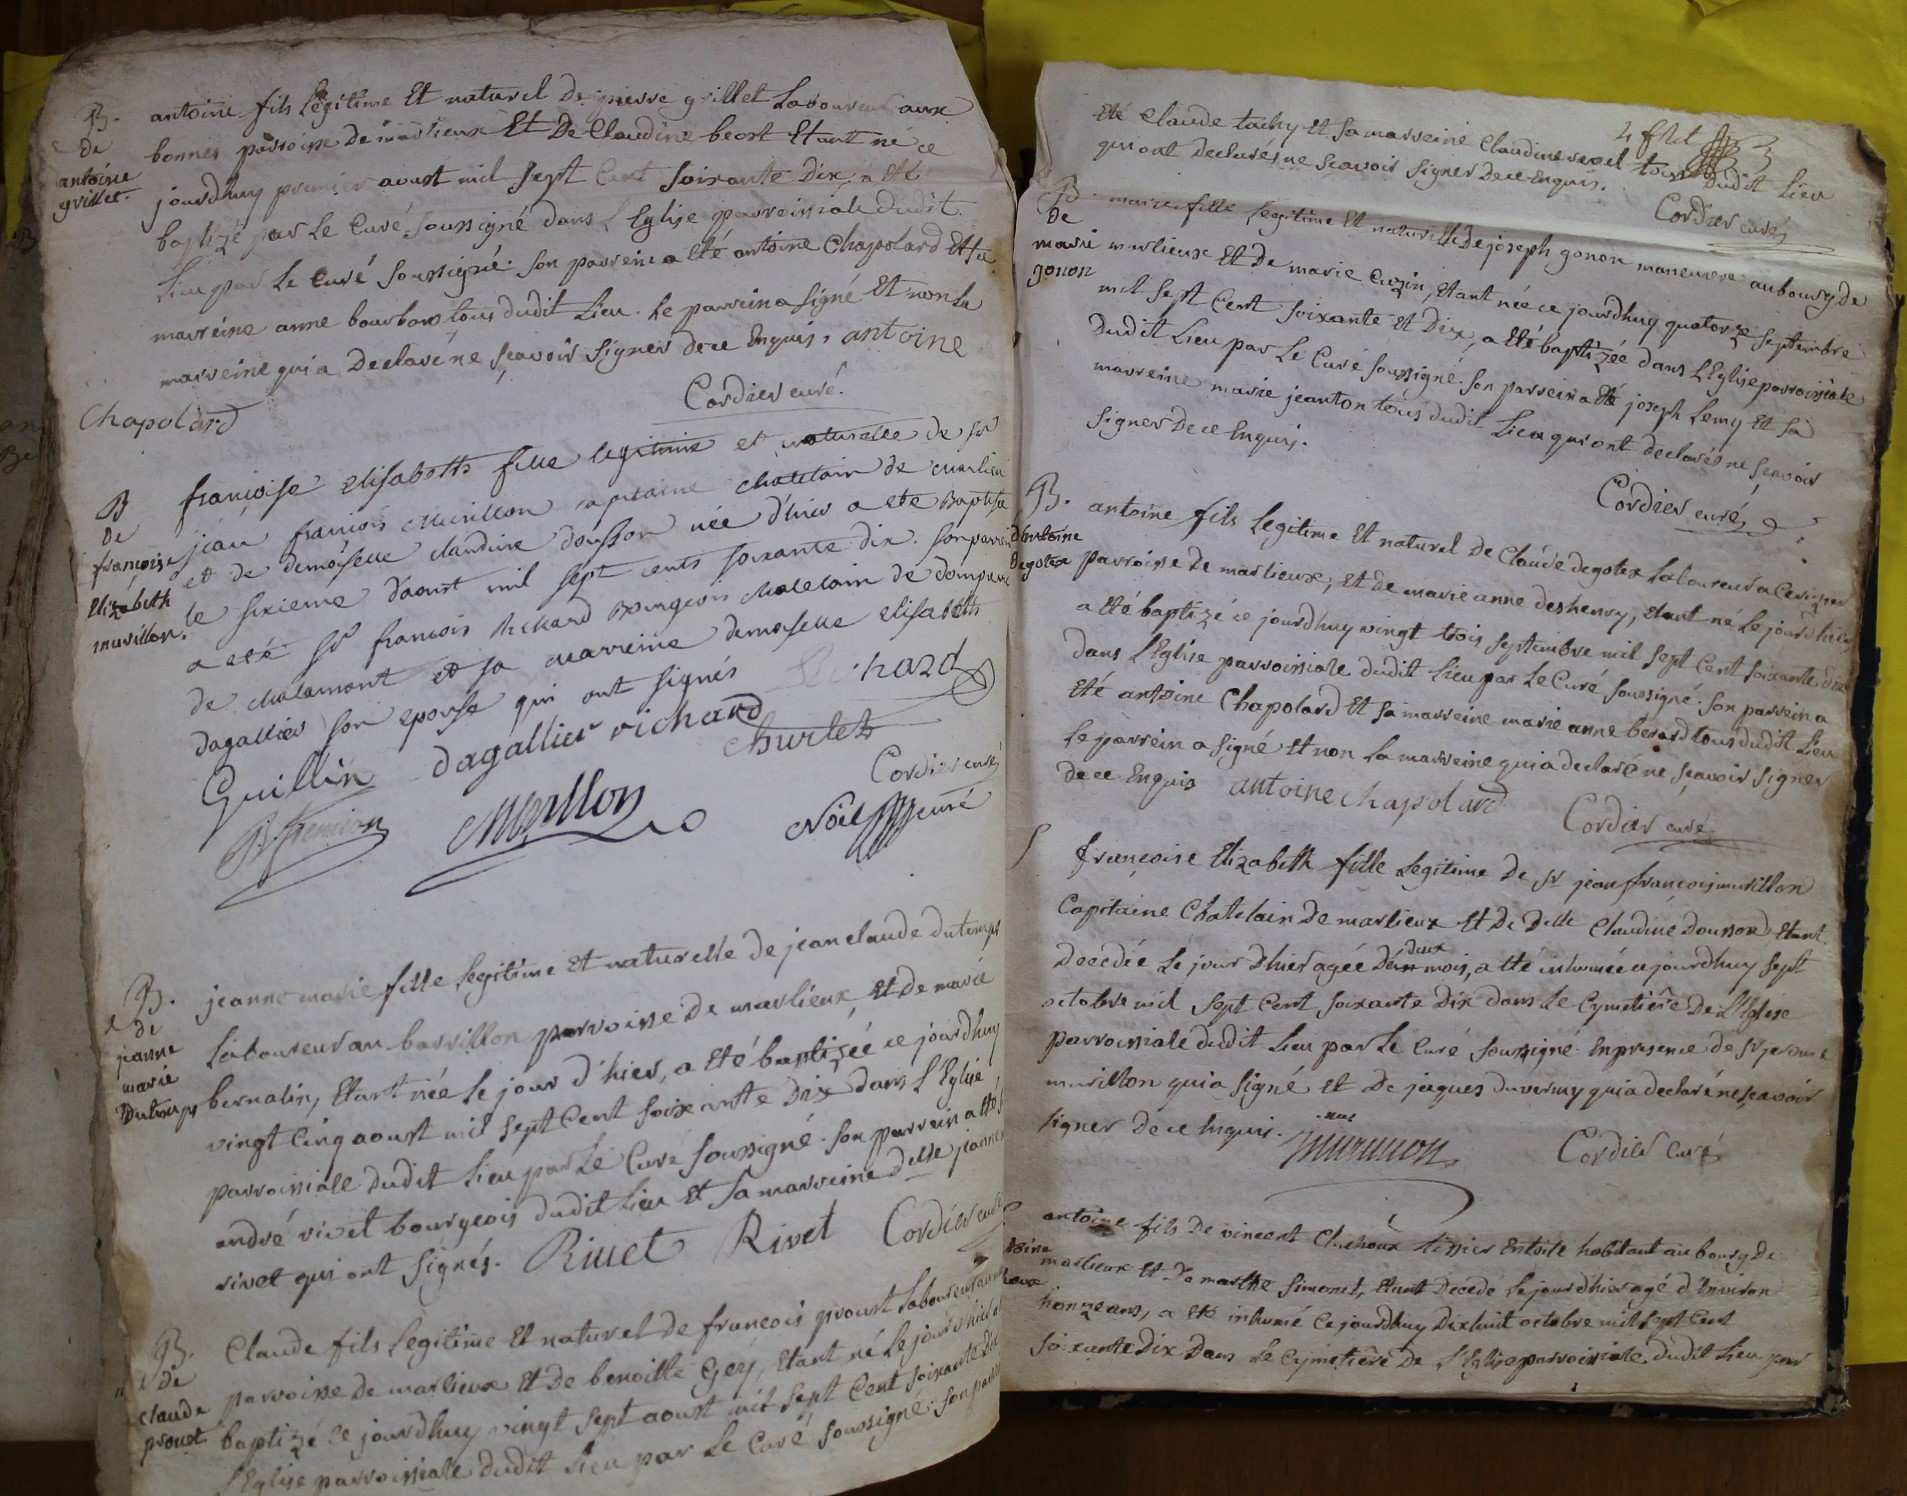 B. de antoine grillet.
antoine fils Legitime Et naturel De pierre grillet Laboureur aux
bonnes parroisse De marlieux Et De Claudine beost Etant né ce
jourdhuy premier aoust mil Sept Cent Soixante Dix, a Eté
baptizé par Le Curé Soussigné dans L'Eglise parroissiale dudit
Lieu par Le Curé Soussigné. Son parrein a Eté antoine Chapolard Et Sa
marreine anne bourbon tous dudit Lieu. Le parrein a Signé Et non La
marreine qui a Declaré ne Sçavoir Signer de ce Enquis. antoine
Chapolard
Cordier curé.
B De françoise Elizabeth murillon.
françoise elisabeth fille legitime et naturelle de sr
jean françois Murillon capitaine chatelain de marlieu
et de demoiselle claudine dousson née d'hier a ete Baptisée
le sixieme d'aoust mil sept cents soixante dix. son parrein
a eté sr francois Richard Bourgeois chatelain de dompierre
de chalamont et sa marreine demoiselle elisabeth
dagallier son epouse qui ont signés Richard
Guillin dagallier richard churlet
Cordier curé
Murillon Noël curé
B. de jeanne marie Dutemps
jeanne marie fille Legitime Et naturelle de jean claude dutemps
Laboureur au barrillon parroisse De marlieux, Et de marie
bernalin, Etant née Le jour d'hier, a Eté baptizée ce jourdhuy
vingt Cinq aoust mil Sept Cent Soixante Dix dans L'Eglise
parroissiale dudit Lieu par Le Curé Soussigné. Son parrein a Eté
andré rivet bourgeois dudit Lieu Et Sa marreine Delle jeanne
rivet qui ont Signés. Rivet Rivet Cordier curé
B. De claude prouet
Claude fils Legitime Et naturel de françois proust Laboureur
parroisse de marlieux Et De benoitte Gey, Etant né Le jour d'hier a
baptizé ce jourdhuy vingt Sept aoust mil Sept Cent Soixante Dix
L'Eglise parroissiale dudit Lieu par Le Curé Soussigné. Son parrein
Eté Claude tachy Et Sa marreine Claudine revel tous Dudit Lieu
qui ont Declarés ne Sçavoir Signer De ce Enquis.
Cordier curé
B De marie gonon
marie fille Legitime Et naturelle De joseph gonon maneuvre au bourg De
marlieux Et De marie Cuzin, Etant née ce jourdhuy quatorze Septembre
mil Sept Cent Soixante Et Dix, a Eté baptizée dans L'Eglise parroissiale
Dudit Lieu par Le Curé Soussigné. Son parrein a Eté joseph Lemy Et Sa
marreine marie jeanton tous Dudit Lieu qui ont declarés ne Sçavoir
Signer De ce Enquis.
Cordier curé
B. D'antoine Degotex
antoine fils Legitime Et naturel De Claude Degotex Laboureur a
parroisse De marlieux, Et De marie anne deshenry, Etant né Le jour d'hier
a Eté baptizé ce jourdhuy vingt trois Septembre mil Sept Cent Soixante dix
dans L'Eglise parroissiale dudit Lieu par Le Curé Soussigné. Son parrein a
Eté antoine Chapolard Et Sa marreine marie anne berard tous dudit Lieu
Le parrein a Signé Et non La marreine qui a declaré ne Sçavoir Signer
de ce Enquis antoine chapolard
Cordier curé
françoise Elizabeth fille Legitime De sr jean françois murillon
Capitaine Chatelain De marlieux Et De Delle Claudine Dousson Etant
Decedée Le jour D'hier agée De deux mois, a Eté inhumée ce jourdhuy Sept
octobre mil Sept Cent Soixante Dix dans Le Cymetiere De L'Eglise
parroissiale dudit Lieu par Le Curé Soussigné. En presence de Sr jerome
murillon qui a Signé Et De jaques duvernay qui a declaré ne Sçavoir
Signer De ce Enquis. murillon Cordier Curé
antoine fils De vincent Chuhoux tissier En toile habitant au bourg De
marlieux Et De marthe Simonet, Etant Decedé Le jour d'hier agé d'Environ
ans, a Eté inhumé ce jourdhuy Dix huit octobre mil Sept Cent
Soixante Dix Dans Le Cymetiere De L'Eglise parroissiale dudit Lieu par